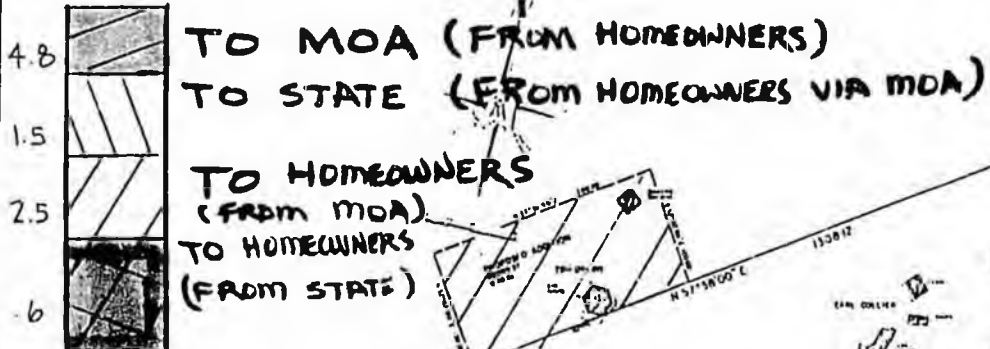 4.8 TO MOA (FROM HOMEOWNERS)
1.5 TO STATE (FROM HOMEOWNERS VIA MOA)
2.5 TO HOMEOWNERS
(FROM MOA)
.6 TO HOMEOWNERS
(FROM STATE)
1338.12
N 57°58'00" E
EARL COLLIER